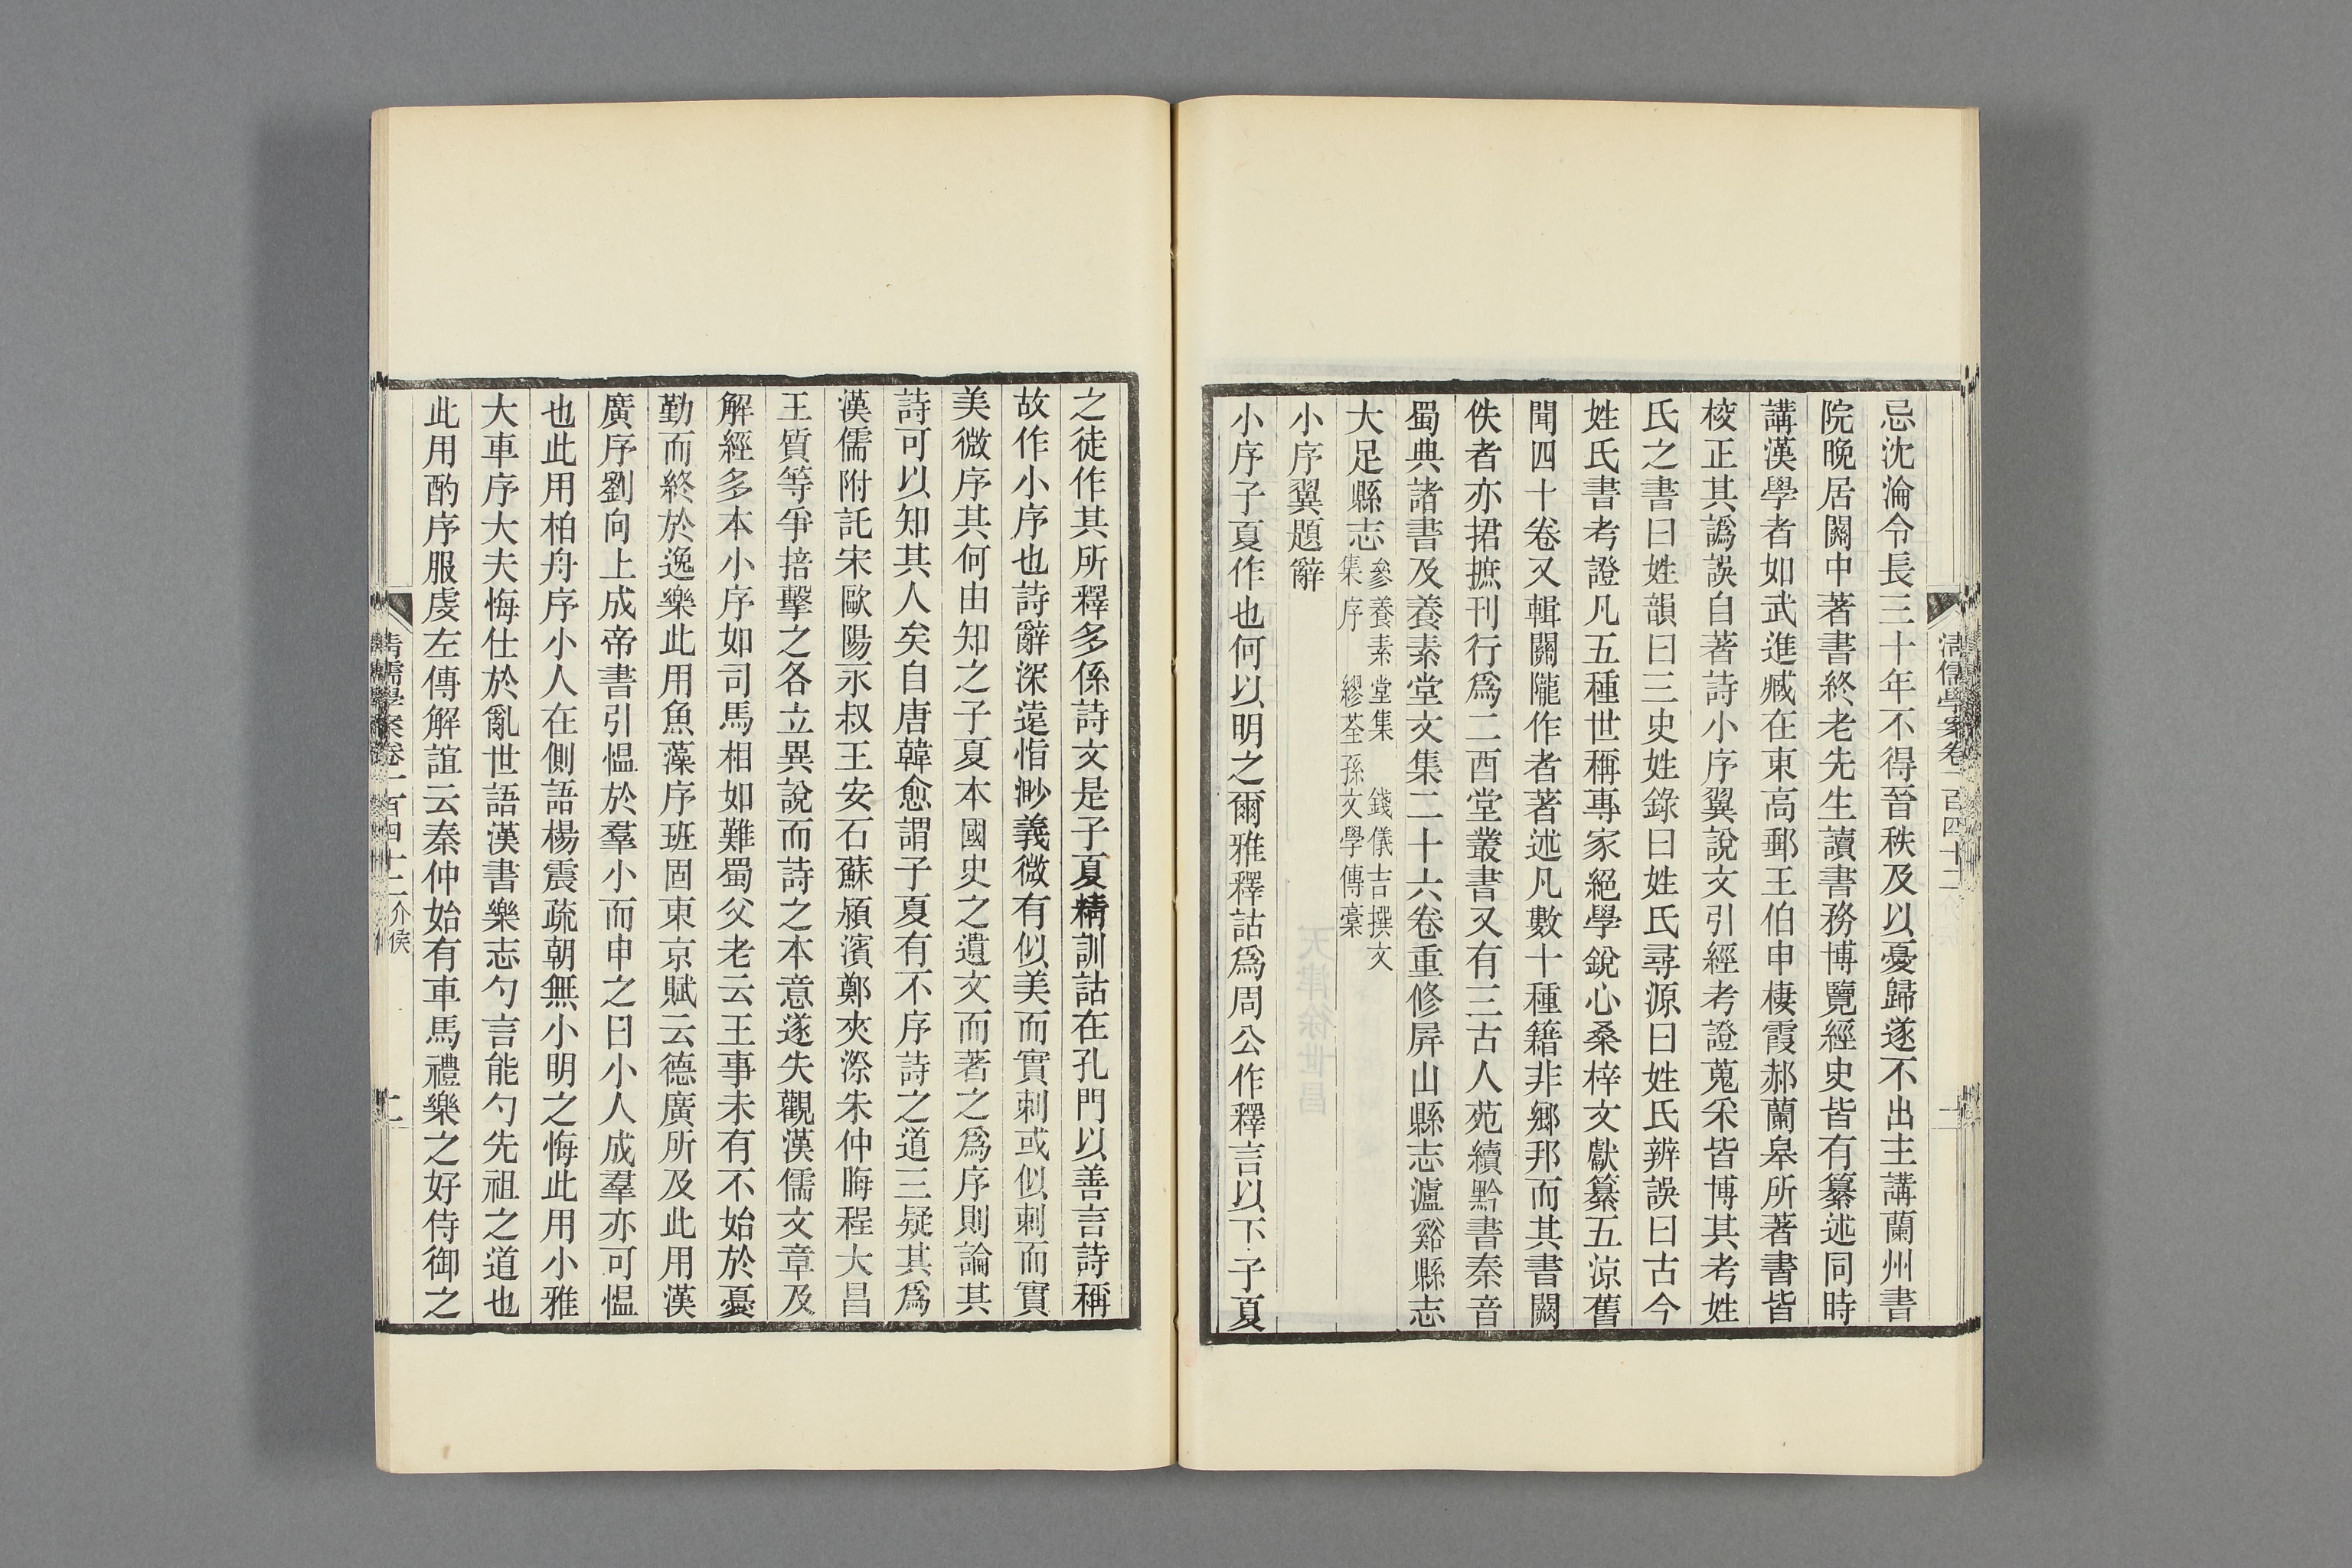 清儒學案卷一百四十二
忌沈淪令長三十年不得晉秩及以憂歸遂不出主講蘭州書
院晚居關中著書終老先生讀書務博覽經史皆有纂述同時
講漢學者如武進臧在東高郵王伯申棲霞郝蘭皋所著書皆
校正其譌誤自著詩小序翼說文引經考證蒐采皆博其考姓
氏之書曰姓韻曰三史姓錄曰姓氏尋源曰姓氏辨誤曰古今
姓氏書考證凡五種世稱專家絕學銳心桑梓文獻纂五涼舊
聞四十卷又輯關隴作者著述凡數十種籍非鄉邦而其書闕
佚者亦捃摭刊行爲二酉堂叢書又有三古人苑續黔書秦音
蜀典諸書及養素堂文集二十六卷重修屏山縣志瀘谿縣志
大足縣志
參養素堂集 錢儀吉撰文
集序 繆荃孫文學傳稾
小序翼題辭
小序子夏作也何以明之爾雅釋詁爲周公作釋言以下子夏
之徒作其所釋多係詩文是子夏精訓詁在孔門以善言詩稱
故作小序也詩辭深遠恉渺義微有似美而實刺或似刺而實
美微序其何由知之子夏本國史之遺文而著之爲序則論其
詩可以知其人矣自唐韓愈謂子夏有不序詩之道三疑其爲
漢儒附託宋歐陽永叔王安石蘇潁濱鄭夾漈朱仲晦程大昌
王質等爭掊擊之各立異說而詩之本意遂失觀漢儒文章及
解經多本小序如司馬相如難蜀父老云王事未有不始於憂
勤而終於逸樂此用魚藻序班固東京賦云德廣所及此用漢
廣序劉向上成帝書引慍於羣小而申之曰小人成羣亦可慍
也此用柏舟序小人在側語楊震疏朝無小明之悔此用小雅
大車序大夫悔仕於亂世語漢書樂志勺言能勺先祖之道也
此用酌序服虔左傳解誼云秦仲始有車馬禮樂之好侍御之
清儒學案卷一百四十二 介侯
二